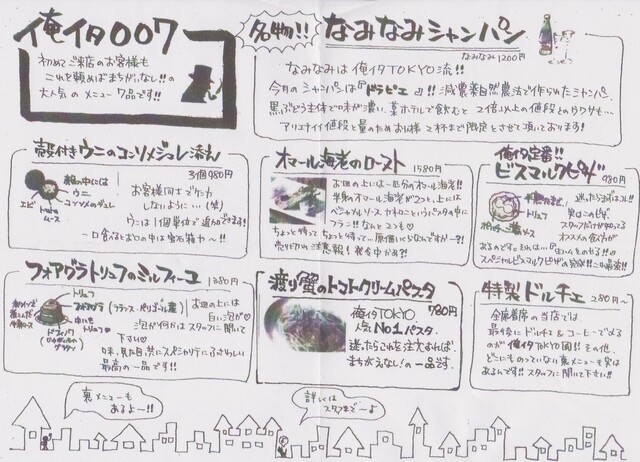 俺イタ007
初めてご来店のお客様も
これを頼めばまちがいなし!!の
大人気のメニュー7品です!!
名物!!
なみなみシャンパン
なみなみ1200円
なみなみは俺イタTOKYO流!!
今月のシャンパンは『ドラピエ』!! 減農薬自然農法で作られたシャンパ
黒ぶどう主体で味が濃い、某ホテルで飲むと2倍以上の値段とのウワサも…
アリエナイイ値段と量のためお1人様2杯まで限定とさせて頂いております!
殻付きウニのコンソメジュレ添え
3個980円
殻の中には
ウニ
コンソメのジュレ
エビ
ムース
お客様同士でケンカ
しないように…(笑)
ウニは1個単位で追加できます!
一口食べるとお口の中は宝石箱や〜!!
オマール海老のロースト
1580円
お皿の上には一匹分のオマール海老!!
半身のオマール海老が2つと、上には
スペシャルソース、カネロニというパスタの中に
フラン!! なんと2つも♡
ちょっと待って ちょっと待って…原価いくらなんですか〜?!
売り切れ注意報!発令中かも?!
俺イタ定番!!
ビスマルクピザ
980円
半熟たまご
トリュフ
迷ったらまずはコレ!!
実はこのピザ、
スタッフだけが知ってる
オススメの食べ方が
あるのです。それは…
スペシャルビスマルクピザの完成!!この最強!!
フォアグラトリュフのミルフィーユ
1280円
トリュフ
フォアグラ
中にも
トリュフ
お皿の上には
白い泡が♡
泡が何かはスタッフに聞いて
下さい♡
味、見た目、共にスペシャリテにふさわしい
最高の一品です!!
渡り蟹のトマトクリームパスタ
780円
俺イタTOKYO
人気No1パスタ。
迷ったらこれを注文すれば、
まちがえなし!の一品です。
特製ドルチェ
280円〜
全席着席の当店では、
最後にドルチェ&コーヒーで〆る
のが俺イタTOKYO図!! その他、
どこにものっていない裏メニューも実は
あるんです!! スタッフに聞いて下さい!!
裏メニューも
あるよ〜!!
詳しくは
スタッフまで〜よ